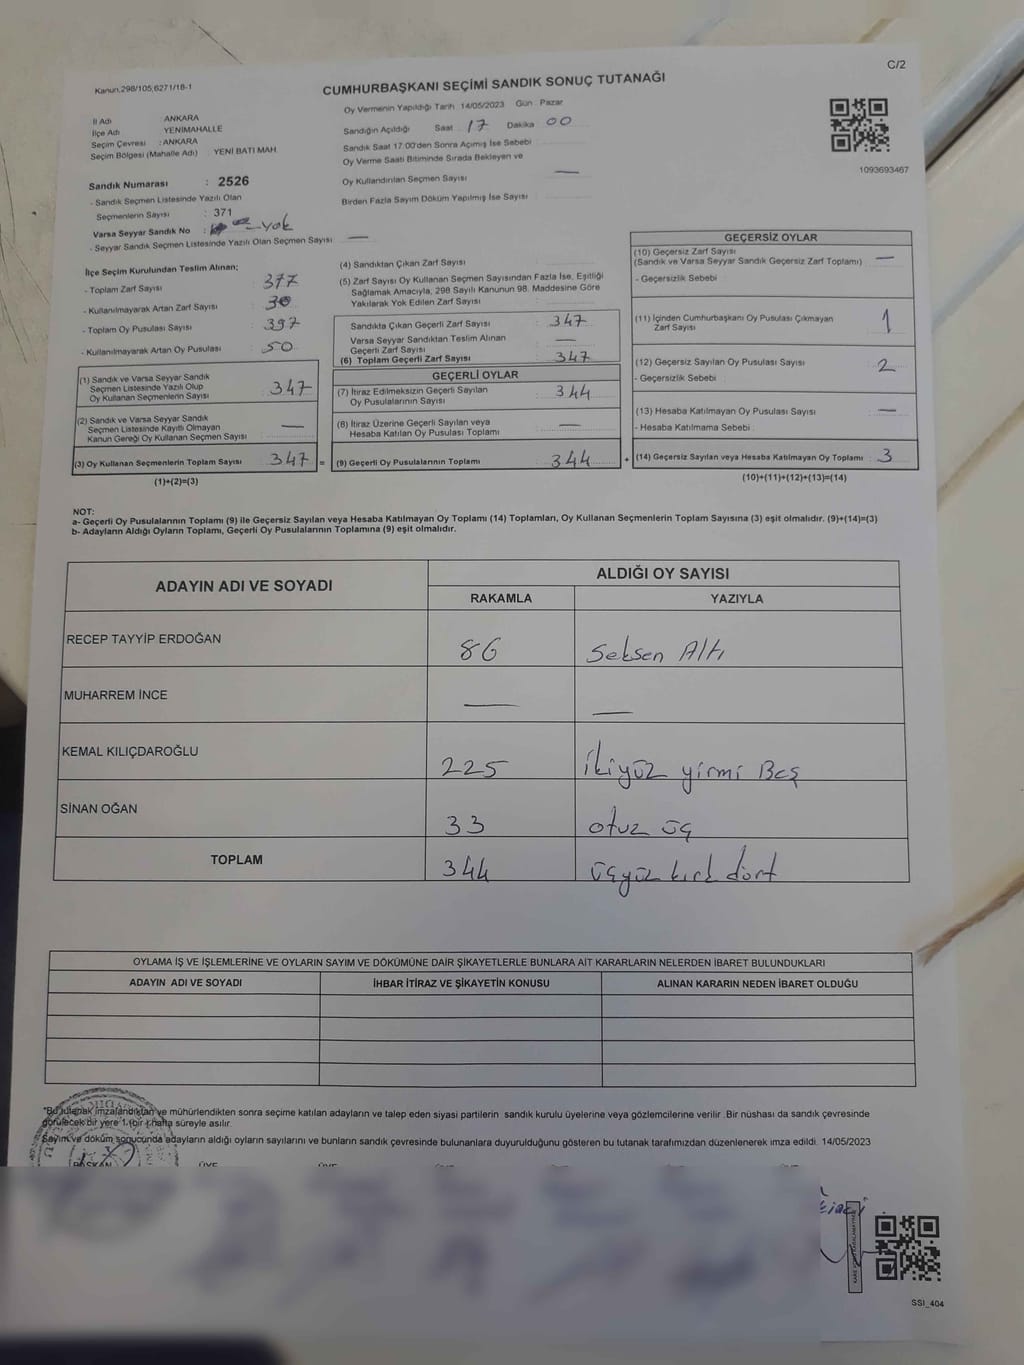 C/2
Kanun.298/105;6271/18-1
CUMHURBAŞKANI SEÇİMİ SANDIK SONUÇ TUTANAĞI
Oy Vermenin Yapıldığı Tarih 14/05/2023 Gün : Pazar
İl Adı ANKARA
İlçe Adı YENİMAHALLE
Seçim Çevresi : ANKARA
Seçim Bölgesi (Mahalle Adı) : YENİ BATI MAH.
Sandığın Açıldığı Saat : 17 Dakika 00
Sandık Saat 17.00'den Sonra Açımış İse Sebebi
Oy Verme Saati Bitiminde Sırada Bekleyen ve
Oy Kullandırılan Seçmen Sayısı —
Birden Fazla Sayım Döküm Yapılmış İse Sayısı
1093693467
Sandık Numarası : 2526
- Sandık Seçmen Listesinde Yazılı Olan
Seçmenlerin Sayısı : 371
Varsa Seyyar Sandık No : yok
- Seyyar Sandık Seçmen Listesinde Yazılı Olan Seçmen Sayısı —
İlçe Seçim Kurulundan Teslim Alınan;
- Toplam Zarf Sayısı : 377
- Kullanılmayarak Artan Zarf Sayısı : 30
- Toplam Oy Pusulası Sayısı : 397
- Kullanılmayarak Artan Oy Pusulası : 50
(1) Sandık ve Varsa Seyyar Sandık
Seçmen Listesinde Yazılı Olup
Oy Kullanan Seçmenlerin Sayısı : 347
(2) Sandık ve Varsa Seyyar Sandık
Seçmen Listesinde Kayıtlı Olmayan
Kanun Gereği Oy Kullanan Seçmen Sayısı —
(3) Oy Kullanan Seçmenlerin Toplam Sayısı : 347 =
(1)+(2)=(3)
(4) Sandıktan Çıkan Zarf Sayısı
(5) Zarf Sayısı Oy Kullanan Seçmen Sayısından Fazla İse, Eşitliği
Sağlamak Amacıyla, 298 Sayılı Kanunun 98. Maddesine Göre
Yakılarak Yok Edilen Zarf Sayısı
Sandıkta Çıkan Geçerli Zarf Sayısı : 347
Varsa Seyyar Sandıktan Teslim Alınan
Geçerli Zarf Sayısı —
(6) Toplam Geçerli Zarf Sayısı : 347
GEÇERLİ OYLAR
(7) İtiraz Edilmeksizin Geçerli Sayılan
Oy Pusulalarının Sayısı : 344
(8) İtiraz Üzerine Geçerli Sayılan veya
Hesaba Katılan Oy Pusulası Toplamı : —
(9) Geçerli Oy Pusulalarının Toplamı : 344 +
GEÇERSİZ OYLAR
(10) Geçersiz Zarf Sayısı
(Sandık ve Varsa Seyyar Sandık Geçersiz Zarf Toplamı) : —
- Geçersizlik Sebebi :
(11) İçinden Cumhurbaşkanı Oy Pusulası Çıkmayan
Zarf Sayısı : 1
(12) Geçersiz Sayılan Oy Pusulası Sayısı : 2
- Geçersizlik Sebebi
(13) Hesaba Katılmayan Oy Pusulası Sayısı : —
- Hesaba Katılmama Sebebi :
(14) Geçersiz Sayılan veya Hesaba Katılmayan Oy Toplamı : 3
(10)+(11)+(12)+(13)=(14)
NOT:
a- Geçerli Oy Pusulalarının Toplamı (9) ile Geçersiz Sayılan veya Hesaba Katılmayan Oy Toplamı (14) Toplamları, Oy Kullanan Seçmenlerin Toplam Sayısına (3) eşit olmalıdır. (9)+(14)=(3)
b- Adayların Aldığı Oyların Toplamı, Geçerli Oy Pusulalarının Toplamına (9) eşit olmalıdır.
ADAYIN ADI VE SOYADI ALDIĞI OY SAYISI
RAKAMLA YAZIYLA
RECEP TAYYİP ERDOĞAN 86 Seksen Altı
MUHARREM İNCE — —
KEMAL KILIÇDAROĞLU 225 İkiyüz yirmi Beş
SİNAN OĞAN 33 otuz üç
TOPLAM 344 üçyüz kırk dört
OYLAMA İŞ VE İŞLEMLERİNE VE OYLARIN SAYIM VE DÖKÜMÜNE DAİR ŞİKAYETLERLE BUNLARA AİT KARARLARIN NELERDEN İBARET BULUNDUKLARI
ADAYIN ADI VE SOYADI İHBAR İTİRAZ VE ŞİKAYETİN KONUSU ALINAN KARARIN NEDEN İBARET OLDUĞU
"Bu tutanak imzalandıktan ve mühürlendikten sonra seçime katılan adayların ve talep eden siyasi partilerin sandık kurulu üyelerine veya gözlemcilerine verilir. Bir nüshası da sandık çevresinde
görülecek bir yere 1 (bir) hafta süreyle asılır.
Sayım ve döküm sonucunda adayların aldığı oyların sayılarını ve bunların sandık çevresinde bulunanlara duyurulduğunu gösteren bu tutanak tarafımızdan düzenlenerek imza edildi. 14/05/2023
BAŞKAN ÜYE ÜYE
SSI_404